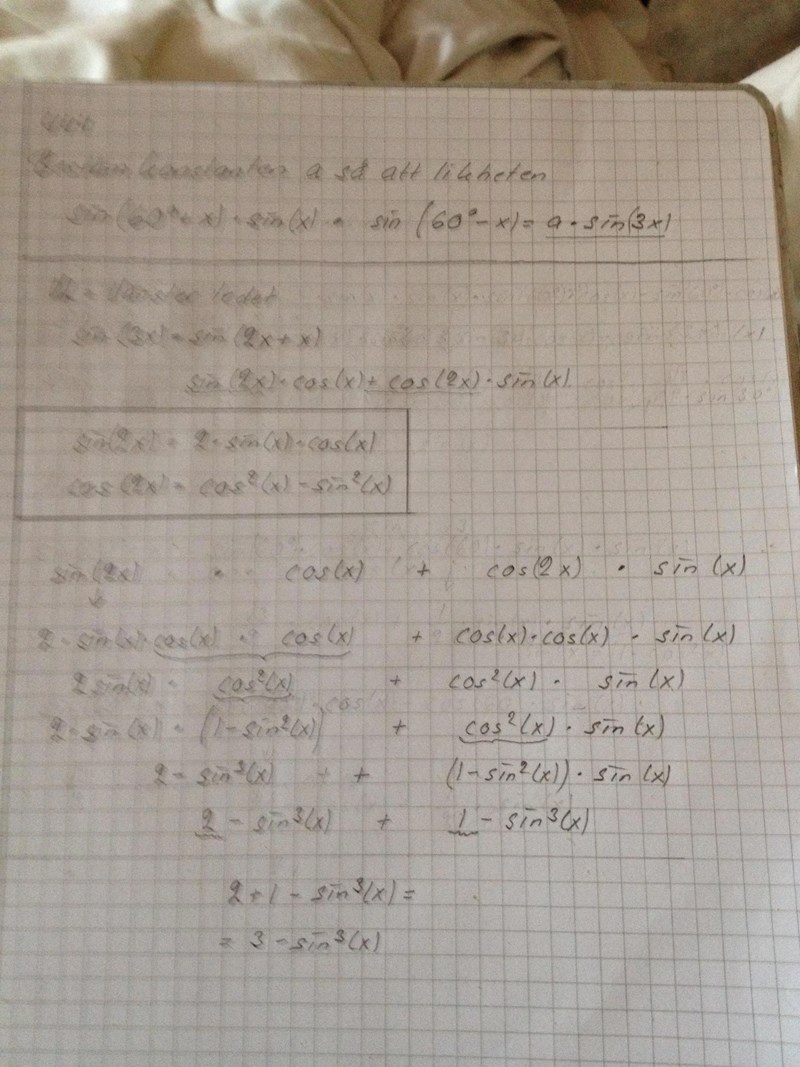 konstanten a så att likheten
sin(60°+x)·sin(x)· sin(60°-x)= a·sin(3x)
VL = vänster ledet
sin(3x)=sin(2x+x)
sin(2x)·cos(x)+cos(2x)·sin(x)
sin(2x) = 2·sin(x)·cos(x)
cos(2x)= cos²(x)-sin²(x)
sin(2x) · cos(x) + cos(2x) · sin(x)
2·sin(x)·cos(x) · cos(x) + cos(x)·cos(x) · sin(x)
2 sin(x) · cos²(x) + cos²(x) · sin(x)
2·sin(x) · (1-sin²(x)) + cos²(x) · sin(x)
2 - sin³(x) + (1-sin²(x))·sin(x)
2 - sin³(x) + 1 - sin³(x)
2+1 - sin³(x) =
= 3 -sin³(x)